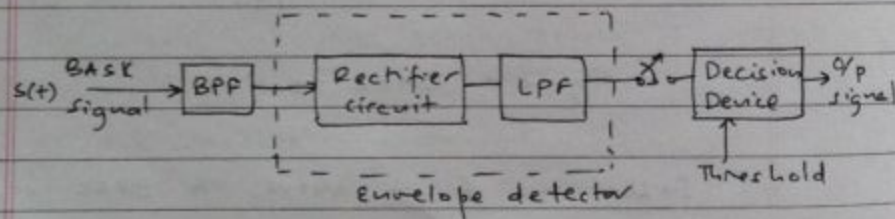 s(t) BASK signal
BPF
Rectifier
circuit
LPF
Decision
Device
O/p
signal
Threshold
Envelope detector